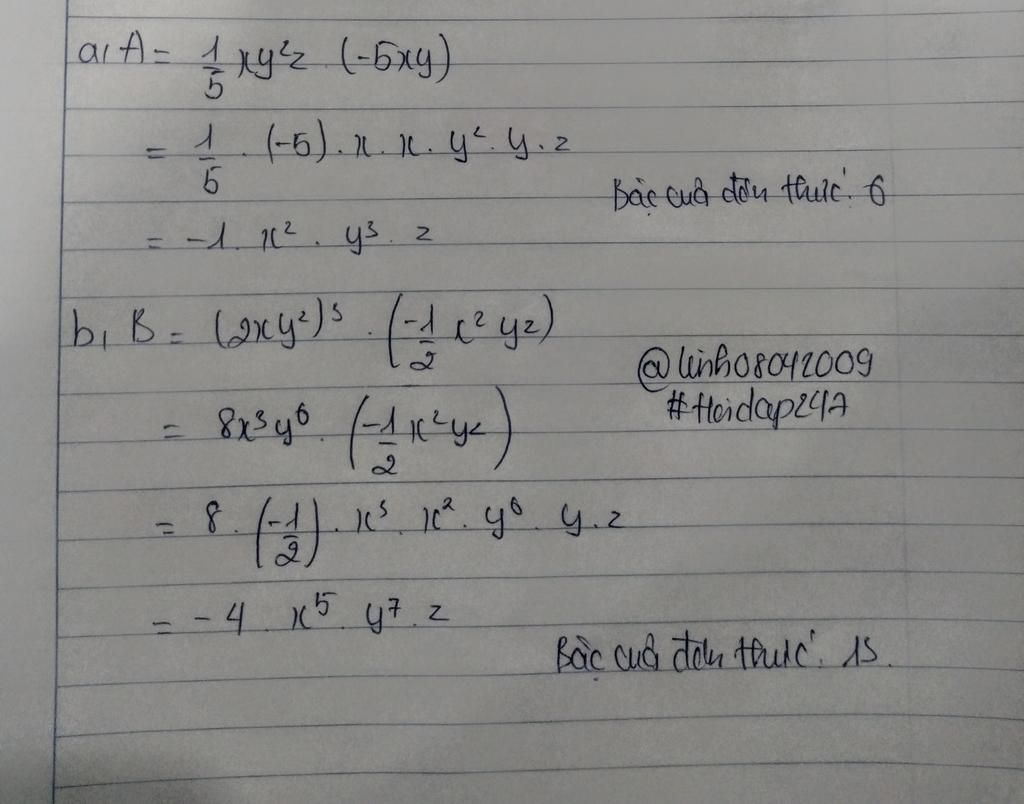 a, A = 1/5 xy²z . (-5xy)
= 1/5 . (-5) . x . x . y² . y . z
Bậc của đơn thức : 6
= -1 . x² . y³ . z
b, B = (2xy²)³ . (-1/2 x² yz)
@linh08042009
#Hoidap247
= 8x³y⁶ . (-1/2 x² yz)
= 8 . (-1/2) . x³ . x² . y⁶ . y . z
= -4 . x⁵ . y⁷ . z
Bậc của đơn thức : 13.